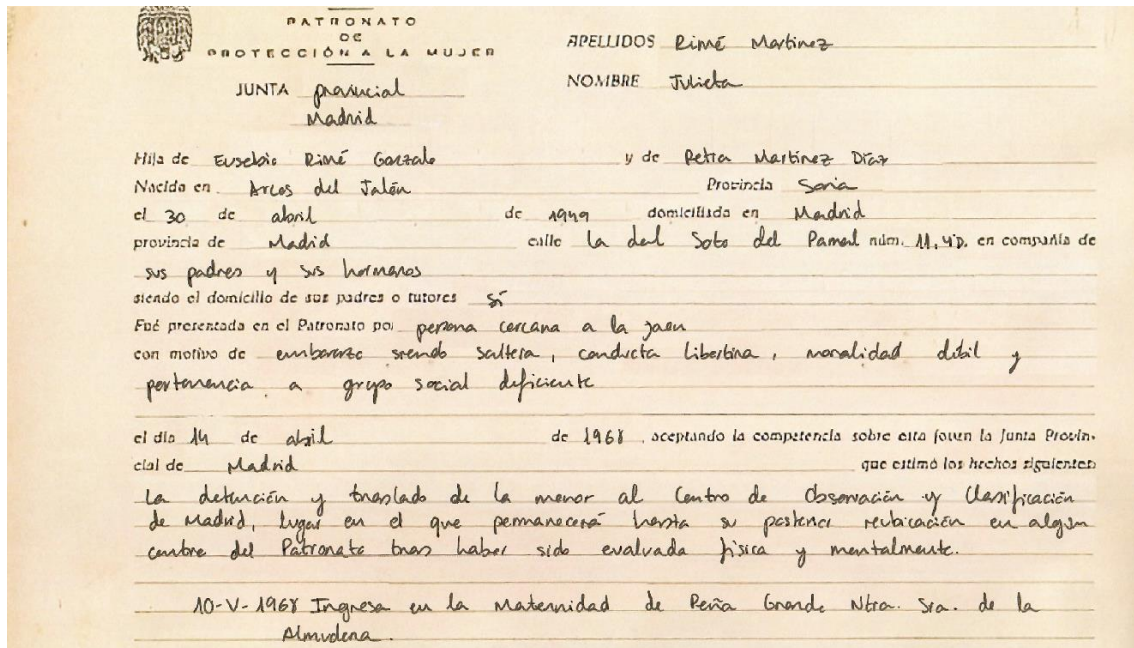 PATRONATO
DE
PROTECCIÓN A LA MUJER
APELLIDOS Rimé Martinez
JUNTA provincial
Madrid
NOMBRE Julieta
Hija de Eusebio Rimé Gonzalo y de Petra Martínez Díaz
Nacida en Arcos del Jalón Provincia Soria
el 30 de abril de 1949 domiciliada en Madrid
provincia de Madrid calle la del Soto del Parral núm. 11, 4º D. en compañía de
sus padres y sus hermanos
siendo el domicilio de sus padres o tutores sí
Fué presentada en el Patronato por persona cercana a la joven
con motivo de embarazo siendo soltera, conducta libertina, moralidad débil y
pertenencia a grupo social deficiente
el día 14 de abril de 1968, aceptando la competencia sobre esta joven la Junta Provin-
cial de Madrid que estimó los hechos siguientes
La detención y traslado de la menor al Centro de Observación y Clasificación
de Madrid, lugar en el que permanecerá hasta su posterior reubicación en algún
centro del Patronato tras haber sido evaluada física y mentalmente.
10-V-1968 Ingresa en la Maternidad de Peña Grande Ntra. Sra. de la
Almudena.